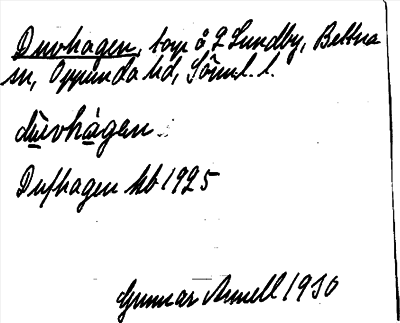 Duvhagen, torp å 2 Lundby, Bettna
sn, Oppunda hd, Söml. l.
dūvhāgen
Dufhagen kb 1925
Gunnar Annell 1930